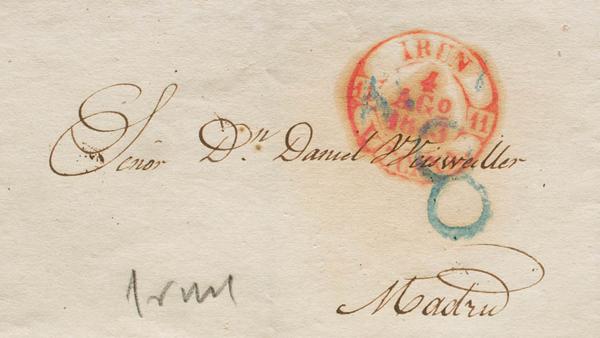 IRUN
4
AGO
11
11
Señor Dn Daniel Weisweiller
Irun
Madrid